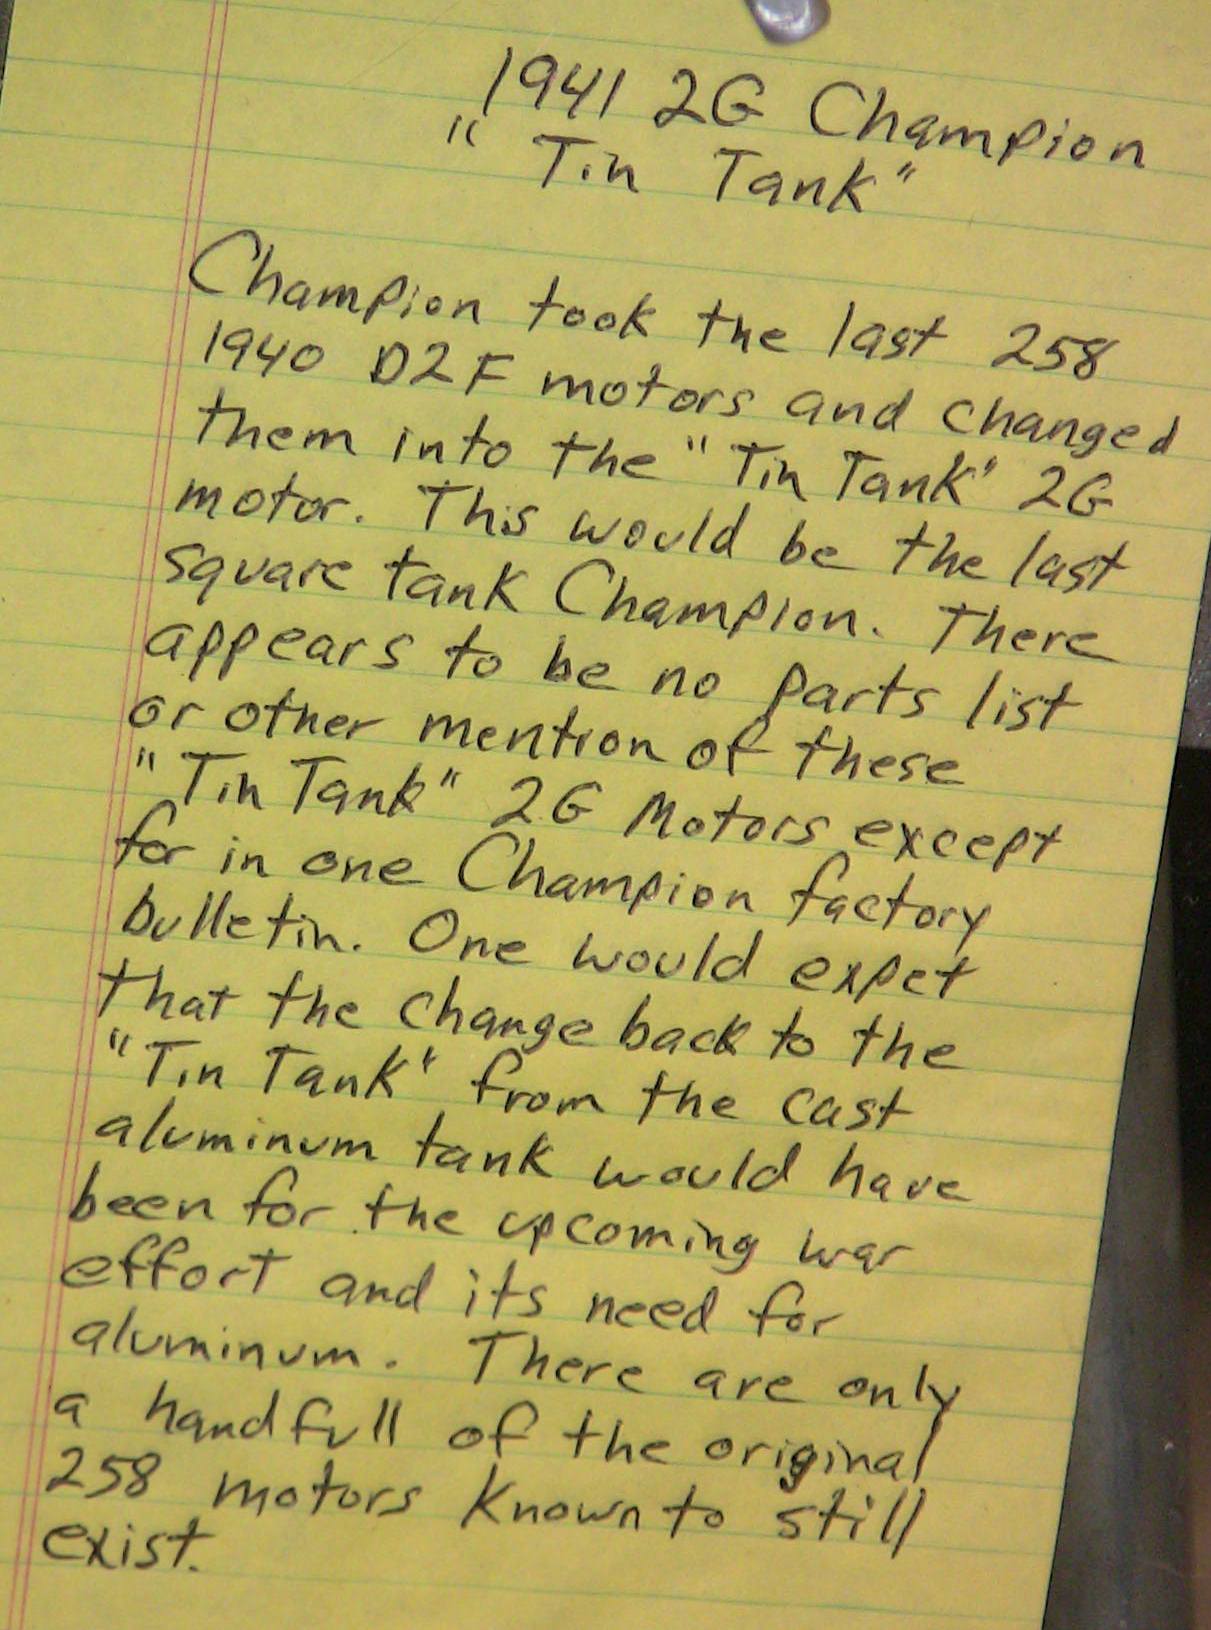 1941 2G Champion
" Tin Tank"
Champion took the last 258
1940 D2F motors and changed
them into the "Tin Tank" 2G
motor. This would be the last
square tank Champion. There
appears to be no parts list
or other mention of these
"Tin Tank" 2G Motors except
for in one Champion factory
bulletin. One would expet
that the change back to the
"Tin Tank" from the cast
aluminum tank would have
been for the upcoming war
effort and its need for
aluminum. There are only
a handfull of the original
258 motors known to still
exist.